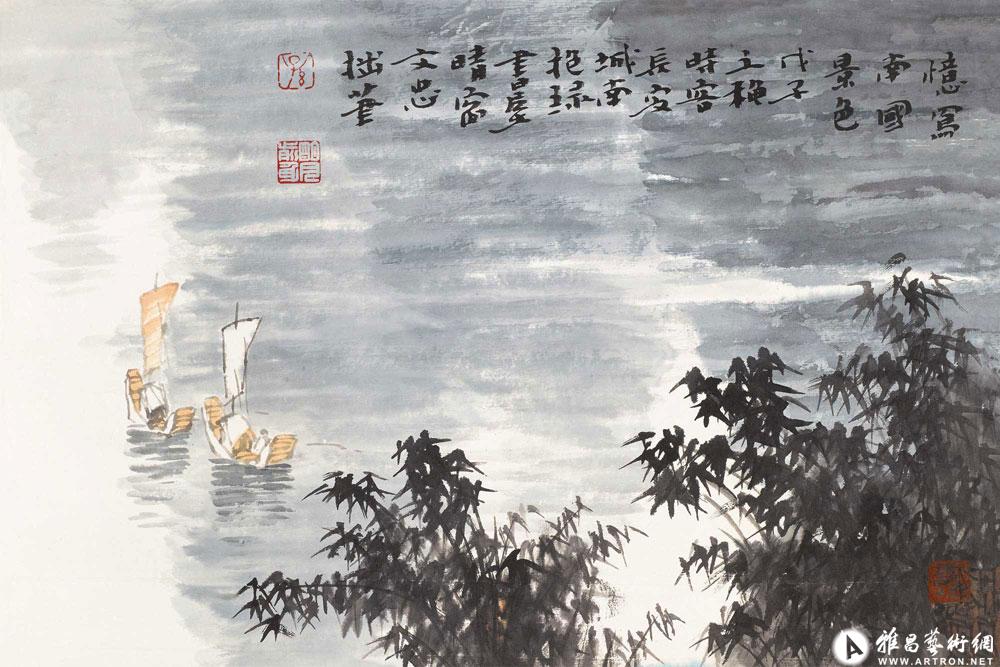 憶寫
南國
景色
戊子
時客
長安
城南
書屋
晴窗
文忠
拙筆
雅昌藝術網
WWW.ARTRON.NET